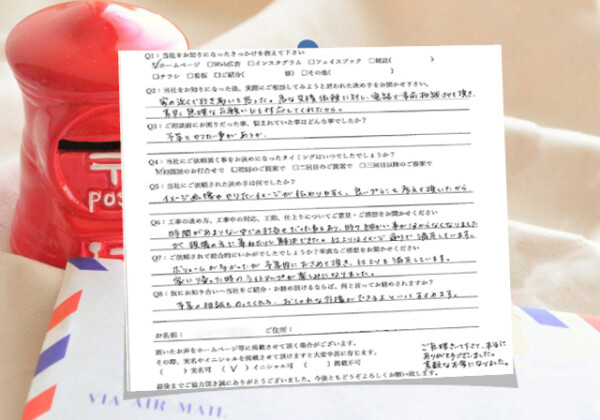 Q1：当社をお知りになったきっかけを教えて下さい
☑ホームページ □Web広告 □インスタグラム □フェイスブック □雑誌( )
□チラシ □看板 □ご紹介( 様) □その他( )
Q2：当社をお知りになった後、実際にご相談してみようと思われた決め手をお聞かせ下さい。
家の近くで
Q3：ご相談前にお困りだった事、悩まれていた事はどんな事でしたか？
予算とやりたい事があうか。
Q4：当社にご依頼頂く事をお決めになったタイミングはいつでしたでしょうか？
☑初回のお打合せで □初回のご提案で □二回目のご提案で □三回目以降のご提案で
Q5：当社にご依頼された決め手は何でしたか？
イメージ画像ややりたいイメージが伝わりやすく、良いプランも考えて頂いたから
Q6：工事の進め方、工事中の対応、工期、仕上りについてご意見・ご感想をお聞かせください
時間があまりない中での打合せだった事もあり、細かい事が分からなくなりました
が 現場の方に事あるたび解決できた。仕上りはイメージ通りで満足しています。
Q7：ご依頼されて総合的にいかがでしたでしょうか？率直なご感想をお聞かせください
ボリュームがあったが予算内におさめて頂き、仕上りも満足しています。
家に帰った時のライトアップが楽しみになりました。
Q8：仮にお知り合いへ当社をご紹介・お勧め頂けるならば、何と言ってお勧めされますか？
予算の相談ものってくれるし、おしゃれな外構ができるよといってすすめます。
お名前： ご住所：
頂いたお声をホームページ等に掲載させて頂く場合がございます。
その際、実名やイニシャルを掲載させて頂けますと大変幸甚に存じます。
( )実名可 (✓)イニシャル可 ( )掲載不可
最後までご協力頂き誠にありがとうございました。今後ともどうぞよろしくお願い致します。
ありがとうございました。
素敵なお家になりました。
POS
VIA AIR MAIL